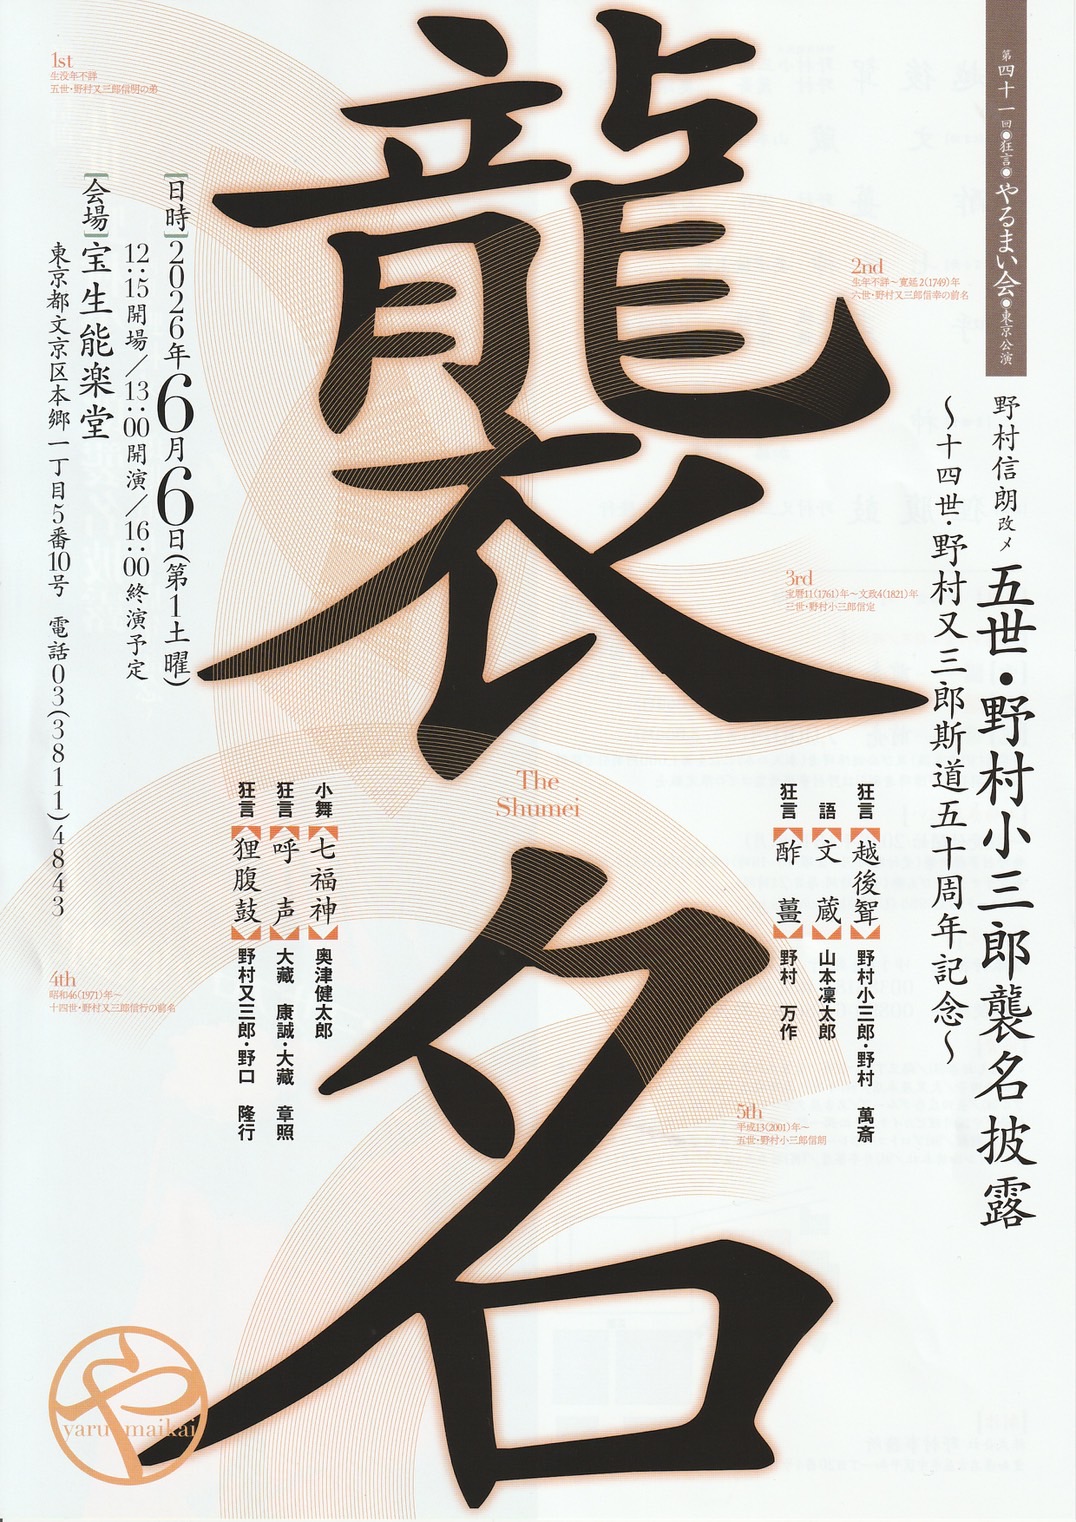 第四十一回●狂言●やるまい会●東京公演
野村信朗改メ 五世・野村小三郎襲名披露
〜十四世・野村又三郎斯道五十周年記念〜
襲名
The
Shumei
1st
生没年不詳
五世・野村又三郎信明の弟
2nd
生年不詳〜寛延2(1749)年
六世・野村又三郎信幸の前名
3rd
宝暦11(1761)年〜文政4(1821)年
三世・野村小三郎信定
4th
昭和46(1971)年〜
十四世・野村又三郎信行の前名
5th
平成13(2001)年〜
五世・野村小三郎信朗
狂言 越後聟 野村小三郎・野村 萬斎
語 文蔵 山本凜太郎
狂言 酢薑 野村 万作
小舞 七福神 奥津健太郎
狂言 呼声 大藏 康誠・大藏 章照
狂言 狸腹鼓 野村又三郎・野口 隆行
[日時]2026年6月6日(第1土曜)
12:15開場/13:00開演/16:00終演予定
[会場]宝生能楽堂
東京都文京区本郷一丁目5番10号 電話03(3811)4843
や
yarumaikai